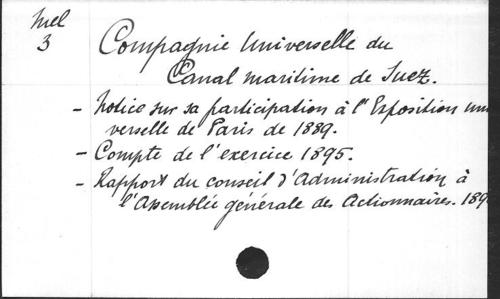 Mel
3
Compagnie Universelle du
Canal maritime de Suez.
- Notice sur sa participation à l'Exposition uni
verselle de Paris de 1889.
- Compte de l'exercice 1895.
- Rapport du conseil d'Administration à
l'Assemblée générale des Actionnaires. 189